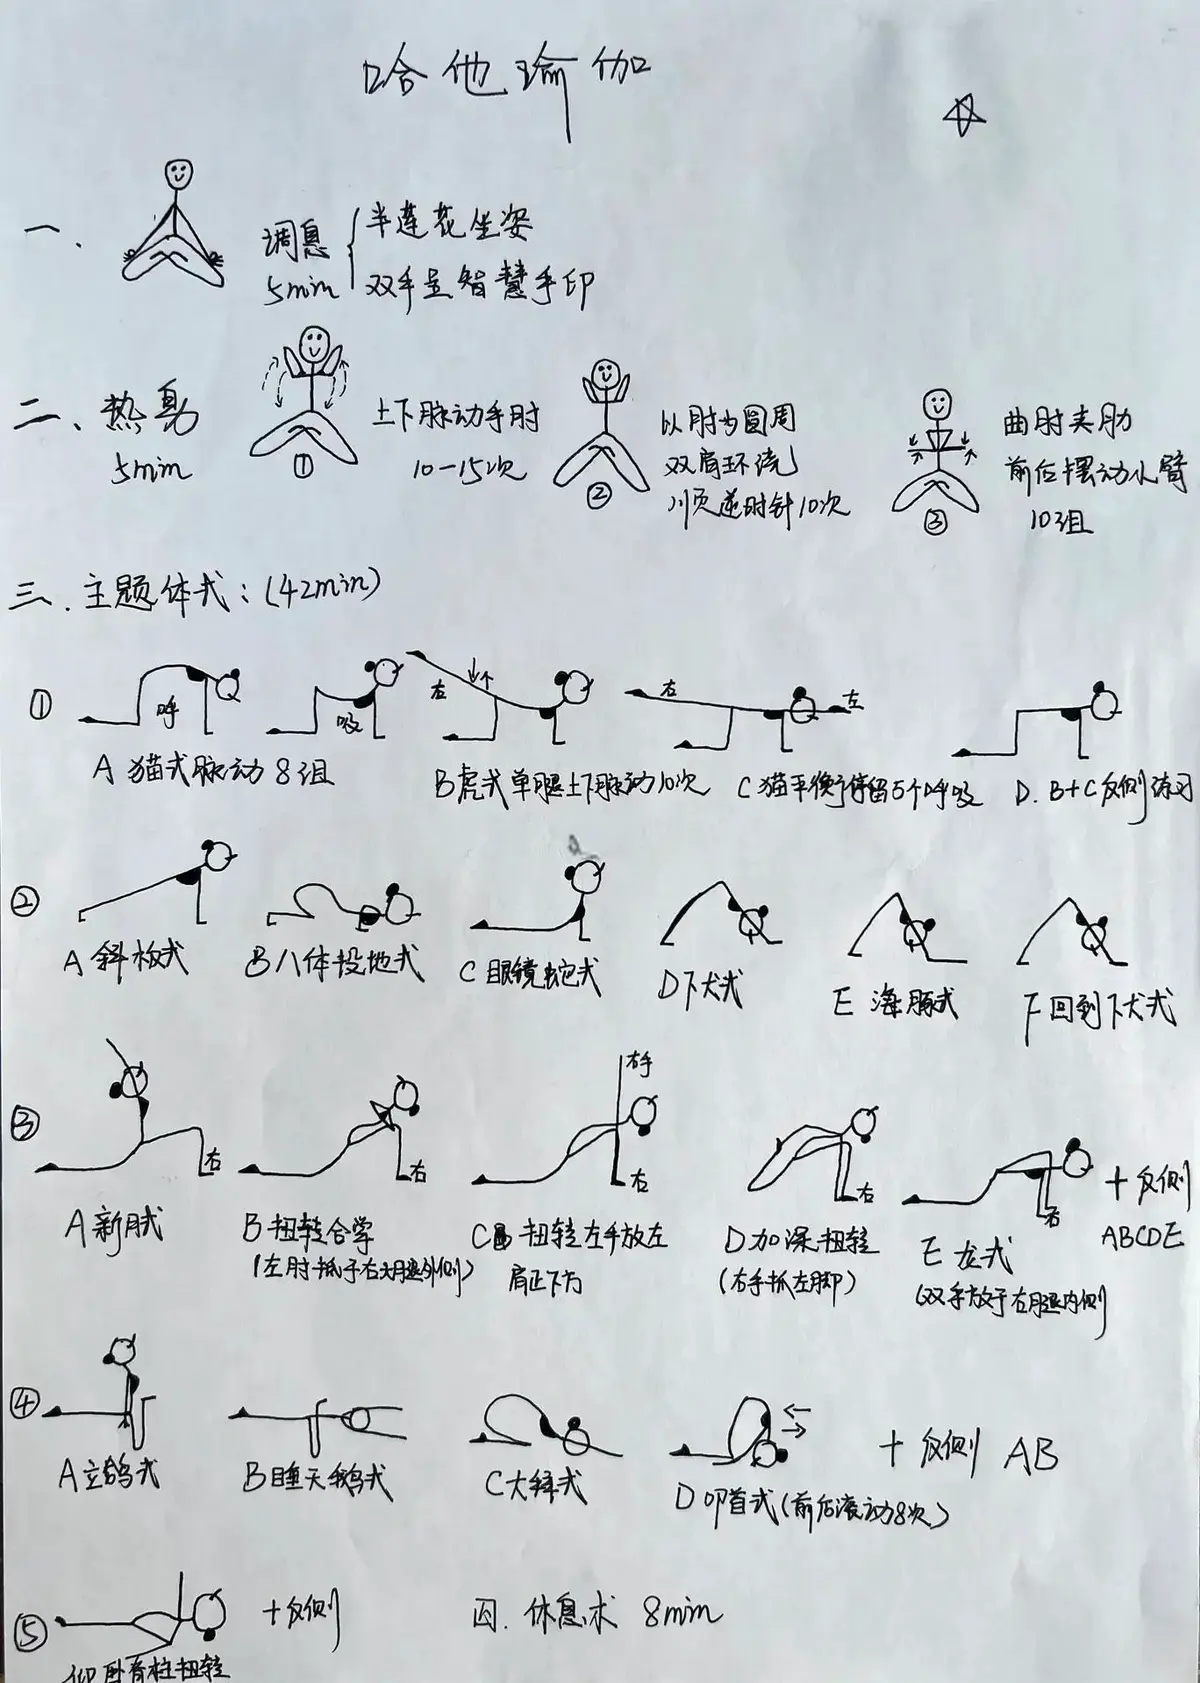 哈他瑜伽
一、
调息 半莲花坐姿
5min 双手呈智慧手印
二、热身
5min
① 上下脉动手肘
10-15次
② 以肘为圆周
双肩环绕
顺逆时针10次
③ 曲肘夹肋
前后摆动小臂
10组
三.主题体式:(42min)
①
呼 吸
右
右 左
A 猫式脉动8组
B虎式单腿上下脉动10次
C猫平衡停留5个呼吸
D.B+C反侧练习
②
A 斜板式
B八体投地式
C眼镜蛇式
D下犬式
E 海豚式
F回到下犬式
③
右
A新月式
右
B扭转合掌
(左肘抵于右大腿外侧)
右手
右
C 扭转左手放左
肩正下方
右
D加深扭转
(右手抓左脚)
右
E龙式
(双手放于右腿内侧
+反侧
ABCDE
④
A立鸽式
B睡天鹅式
C大拜式
D叩首式(前后滚动8次)
+反侧 AB
⑤
仰卧脊柱扭转
+反侧
四.休息术 8min